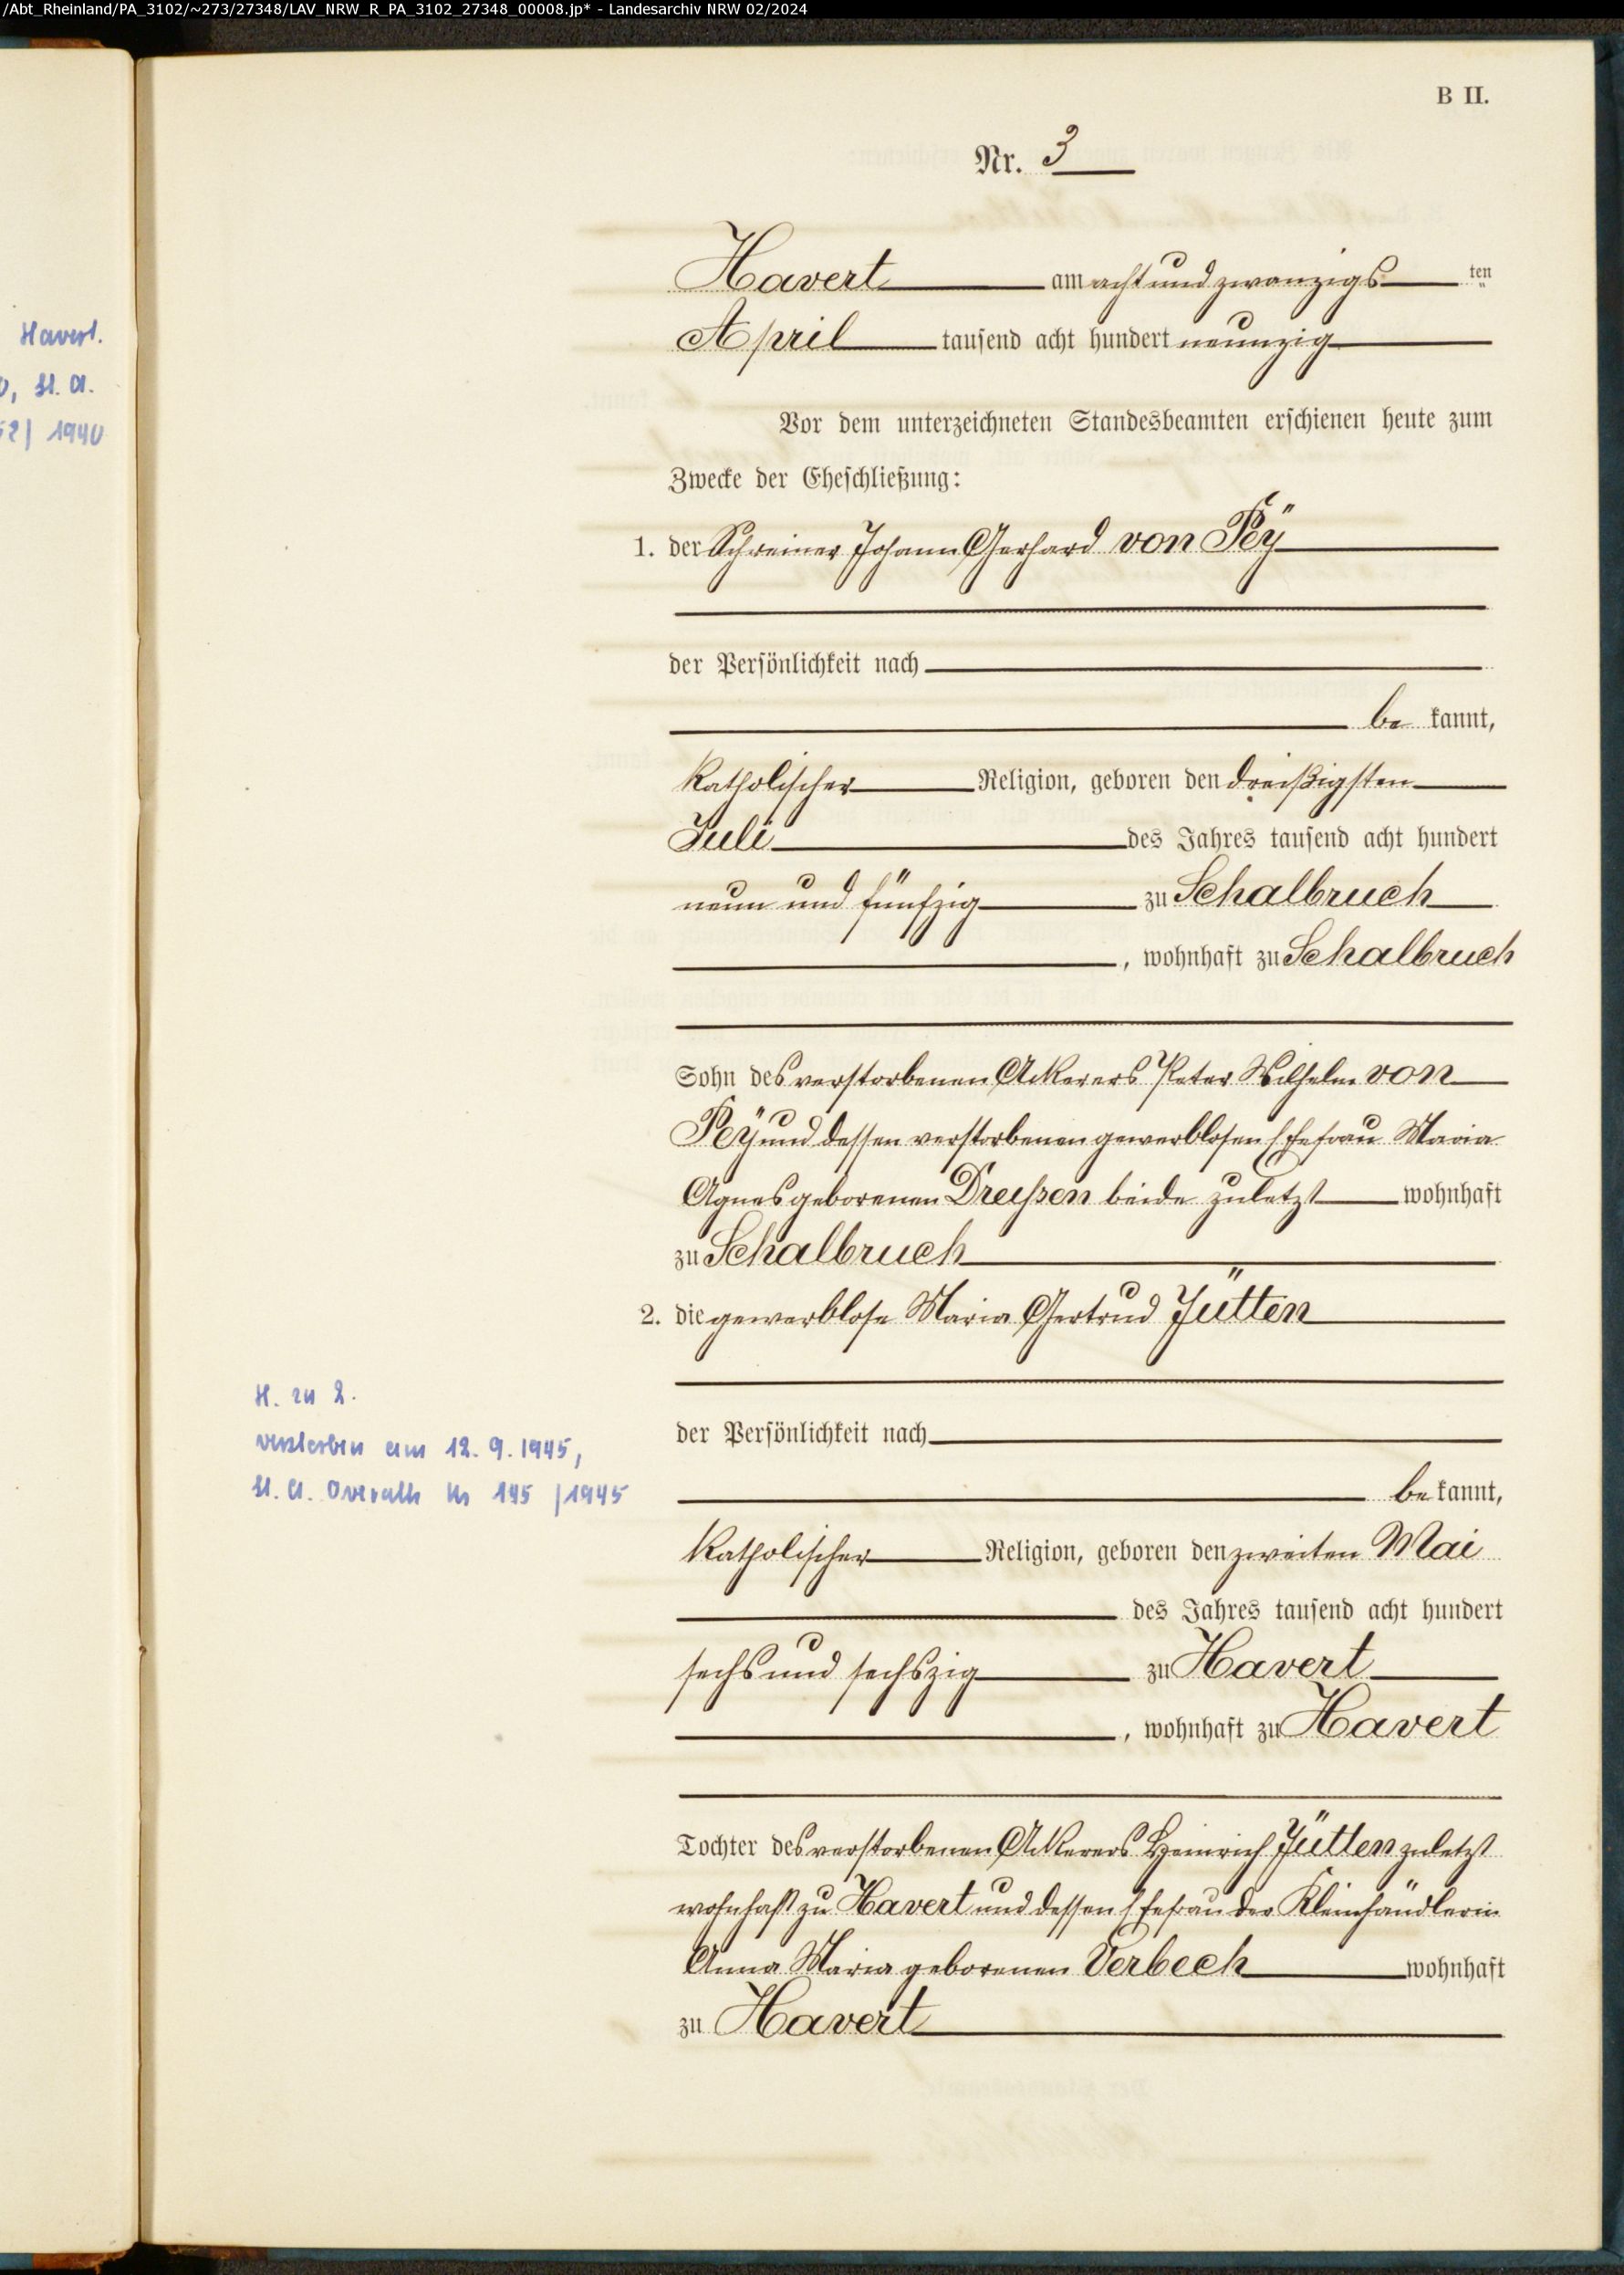 /Abt_Rheinland/PA_3102/~273/27348/LAV_NRW_R_PA_3102_27348_00008.jp* - Landesarchiv NRW 02/2024
Havert.
, St. A.
52| 1940
B II.
Nr. 3
Havert am acht und zwanzigs ten
April tausend acht hundert neunzig
Vor dem unterzeichneten Standesbeamten erschienen heute zum
Zwecke der Eheschließung:
1. der Schreiner Johann Gerhard von Peÿ
der Persönlichkeit nach
be kannt,
katholischer Religion, geboren den dreißigsten
Juli des Jahres tausend acht hundert
neun und fünfzig zu Schalbruch
, wohnhaft zu Schalbruch
Sohn des verstorbenen Ackerers Peter Wilhelm von
Peÿ und dessen verstorbenen gewerblosen Ehefrau Maria
Agnes geborenen Dreyssen beide zuletzt wohnhaft
zu Schalbruch
2. die gewerblose Maria Gertrud Jütten
der Persönlichkeit nach
be kannt,
H. zu 2.
verstorben am 12.9.1945,
St. A. Overath Nr 195 /1945
katholischer Religion, geboren den zweiten Mai
des Jahres tausend acht hundert
sechs und sechszig zu Havert
, wohnhaft zu Havert
Tochter des verstorbenen Ackerers Heinrich Jütten zuletzt
wohnhaft zu Havert und dessen Ehefrau der Kleinhändlerin
Anna Maria geborenen Verbeek wohnhaft
zu Havert